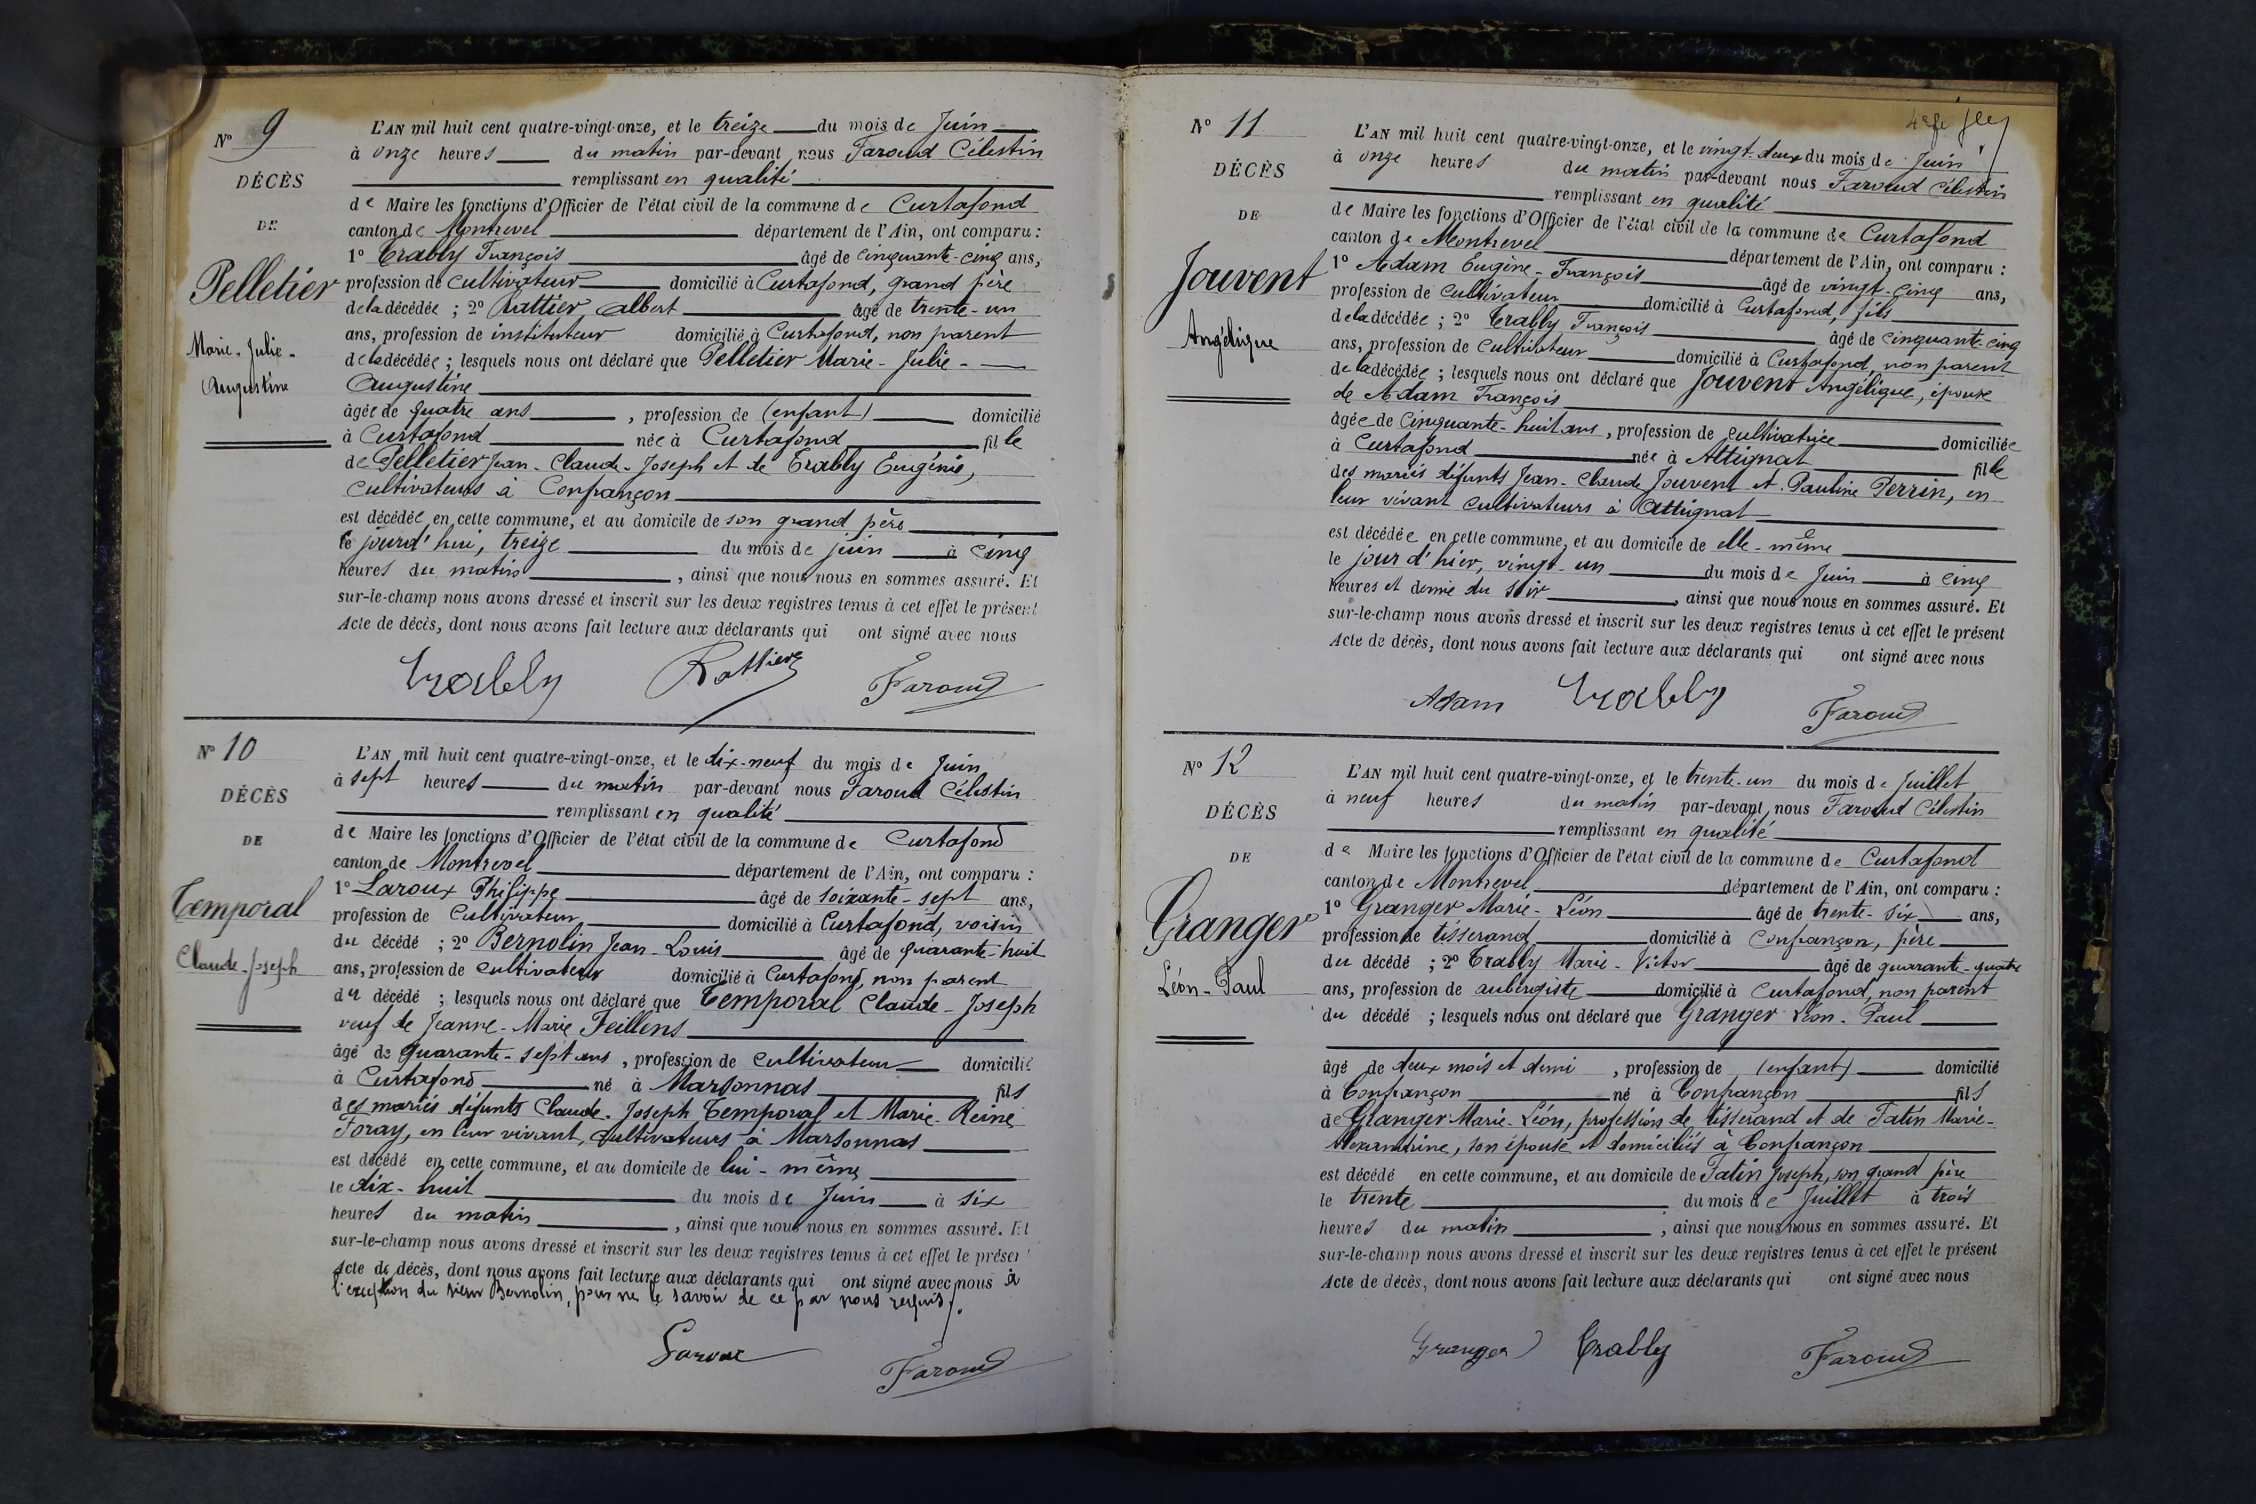 N° 9
DÉCÈS
DE
Pelletier
Marie-Julie-
Augustine
L'AN mil huit cent quatre-vingt-onze, et le treize du mois de Juin
à onze heures du matin par-devant nous Faroud Célestin
remplissant en qualité
de Maire les fonctions d'Officier de l'état civil de la commune de Curtafond
canton de Montrevel département de l'Ain, ont comparu :
1° Trably François âgé de cinquante-cinq ans,
profession de cultivateur domicilié à Curtafond, grand père
de la décédée ; 2° Rattier Albert âgé de trente-un
ans, profession de instituteur domicilié à Curtafond, non parent
de la décédée ; lesquels nous ont déclaré que Pelletier Marie-Julie-
Augustine
âgée de quatre ans , profession de (enfant) domicilié
à Curtafond née à Curtafond fille
de Pelletier Jean-Claude-Joseph et de Trably Eugénie,
cultivateurs à Confrançon
est décédée en cette commune, et au domicile de son grand père
le jourd'hui, treize du mois de juin à cinq
heures du matin , ainsi que nous nous en sommes assuré. Et
sur-le-champ nous avons dressé et inscrit sur les deux registres tenus à cet effet le présent
Acte de décès, dont nous avons fait lecture aux déclarants qui ont signé avec nous
Trably Rattier Faroud
N° 10
DÉCÈS
DE
Temporal
Claude-Joseph
L'AN mil huit cent quatre-vingt-onze, et le dix-neuf du mois de Juin
à sept heures du matin par-devant nous Faroud Célestin
remplissant en qualité
de Maire les fonctions d'Officier de l'état civil de la commune de Curtafond
canton de Montrevel département de l'Ain, ont comparu :
1° Laroux Philippe âgé de soixante-sept ans,
profession de Cultivateur domicilié à Curtafond, voisin
du décédé ; 2° Bernolin Jean-Louis âgé de quarante-huit
ans, profession de cultivateur domicilié à Curtafond, non parent
du décédé ; lesquels nous ont déclaré que Temporal Claude-Joseph
veuf de Jeanne-Marie Feillens
âgé de quarante-sept ans , profession de cultivateur domicilié
à Curtafond né à Marsonnas fils
des mariés défunts Claude-Joseph Temporal et Marie-Reine
Foray, en leur vivant, cultivateurs à Marsonnas
est décédé en cette commune, et au domicile de lui-même
le dix-huit du mois de Juin à six
heures du matin , ainsi que nous nous en sommes assuré. Et
sur-le-champ nous avons dressé et inscrit sur les deux registres tenus à cet effet le présent
Acte de décès, dont nous avons fait lecture aux déclarants qui ont signé avec nous à
l'exception du sieur Bernolin, pour ne le savoir de ce par nous requis.
Faroud
N° 11
DÉCÈS
DE
Jouvent
Angélique
L'AN mil huit cent quatre-vingt-onze, et le vingt-deux du mois de Juin
à onze heures du matin par-devant nous Faroud Célestin
remplissant en qualité
de Maire les fonctions d'Officier de l'état civil de la commune de Curtafond
canton de Montrevel département de l'Ain, ont comparu :
1° Adam Eugène-François âgé de vingt-cinq ans,
profession de cultivateur domicilié à Curtafond, fils
de la décédée ; 2° Trably François âgé de cinquante-cinq
ans, profession de cultivateur domicilié à Curtafond, non parent
de la décédée ; lesquels nous ont déclaré que Jouvent Angélique, épouse
de Adam François
âgée de cinquante-huit ans , profession de cultivatrice domiciliée
à Curtafond née à Attignat fille
des mariés défunts Jean-Claude Jouvent et Pauline Perrin, en
leur vivant cultivateurs à Attignat
est décédée en cette commune, et au domicile de elle-même
le jour d'hier, vingt-un du mois de Juin à cinq
heures et demie du soir , ainsi que nous nous en sommes assuré. Et
sur-le-champ nous avons dressé et inscrit sur les deux registres tenus à cet effet le présent
Acte de décès, dont nous avons fait lecture aux déclarants qui ont signé avec nous
Adam Trably Faroud
N° 12
DÉCÈS
DE
Granger
Léon-Paul
L'AN mil huit cent quatre-vingt-onze, et le trente-un du mois de Juillet
à neuf heures du matin par-devant nous Faroud Célestin
remplissant en qualité
de Maire les fonctions d'Officier de l'état civil de la commune de Curtafond
canton de Montrevel département de l'Ain, ont comparu :
1° Granger Marie-Léon âgé de trente-six ans,
profession de tisserand domicilié à Confrançon, père
du décédé ; 2° Trably Marie-Victor âgé de quarante-quatre
ans, profession de aubergiste domicilié à Curtafond, non parent
du décédé ; lesquels nous ont déclaré que Granger Léon-Paul
âgé de deux mois et demi , profession de (enfant) domicilié
à Confrançon né à Confrançon fils
de Granger Marie-Léon, profession de tisserand et de Tatin Marie-
Alexandrine, son épouse et domiciliés à Confrançon
est décédé en cette commune, et au domicile de Tatin Joseph, son grand père
le trente du mois de Juillet à trois
heures du matin , ainsi que nous nous en sommes assuré. Et
sur-le-champ nous avons dressé et inscrit sur les deux registres tenus à cet effet le présent
Acte de décès, dont nous avons fait lecture aux déclarants qui ont signé avec nous
Granger Trably Faroud